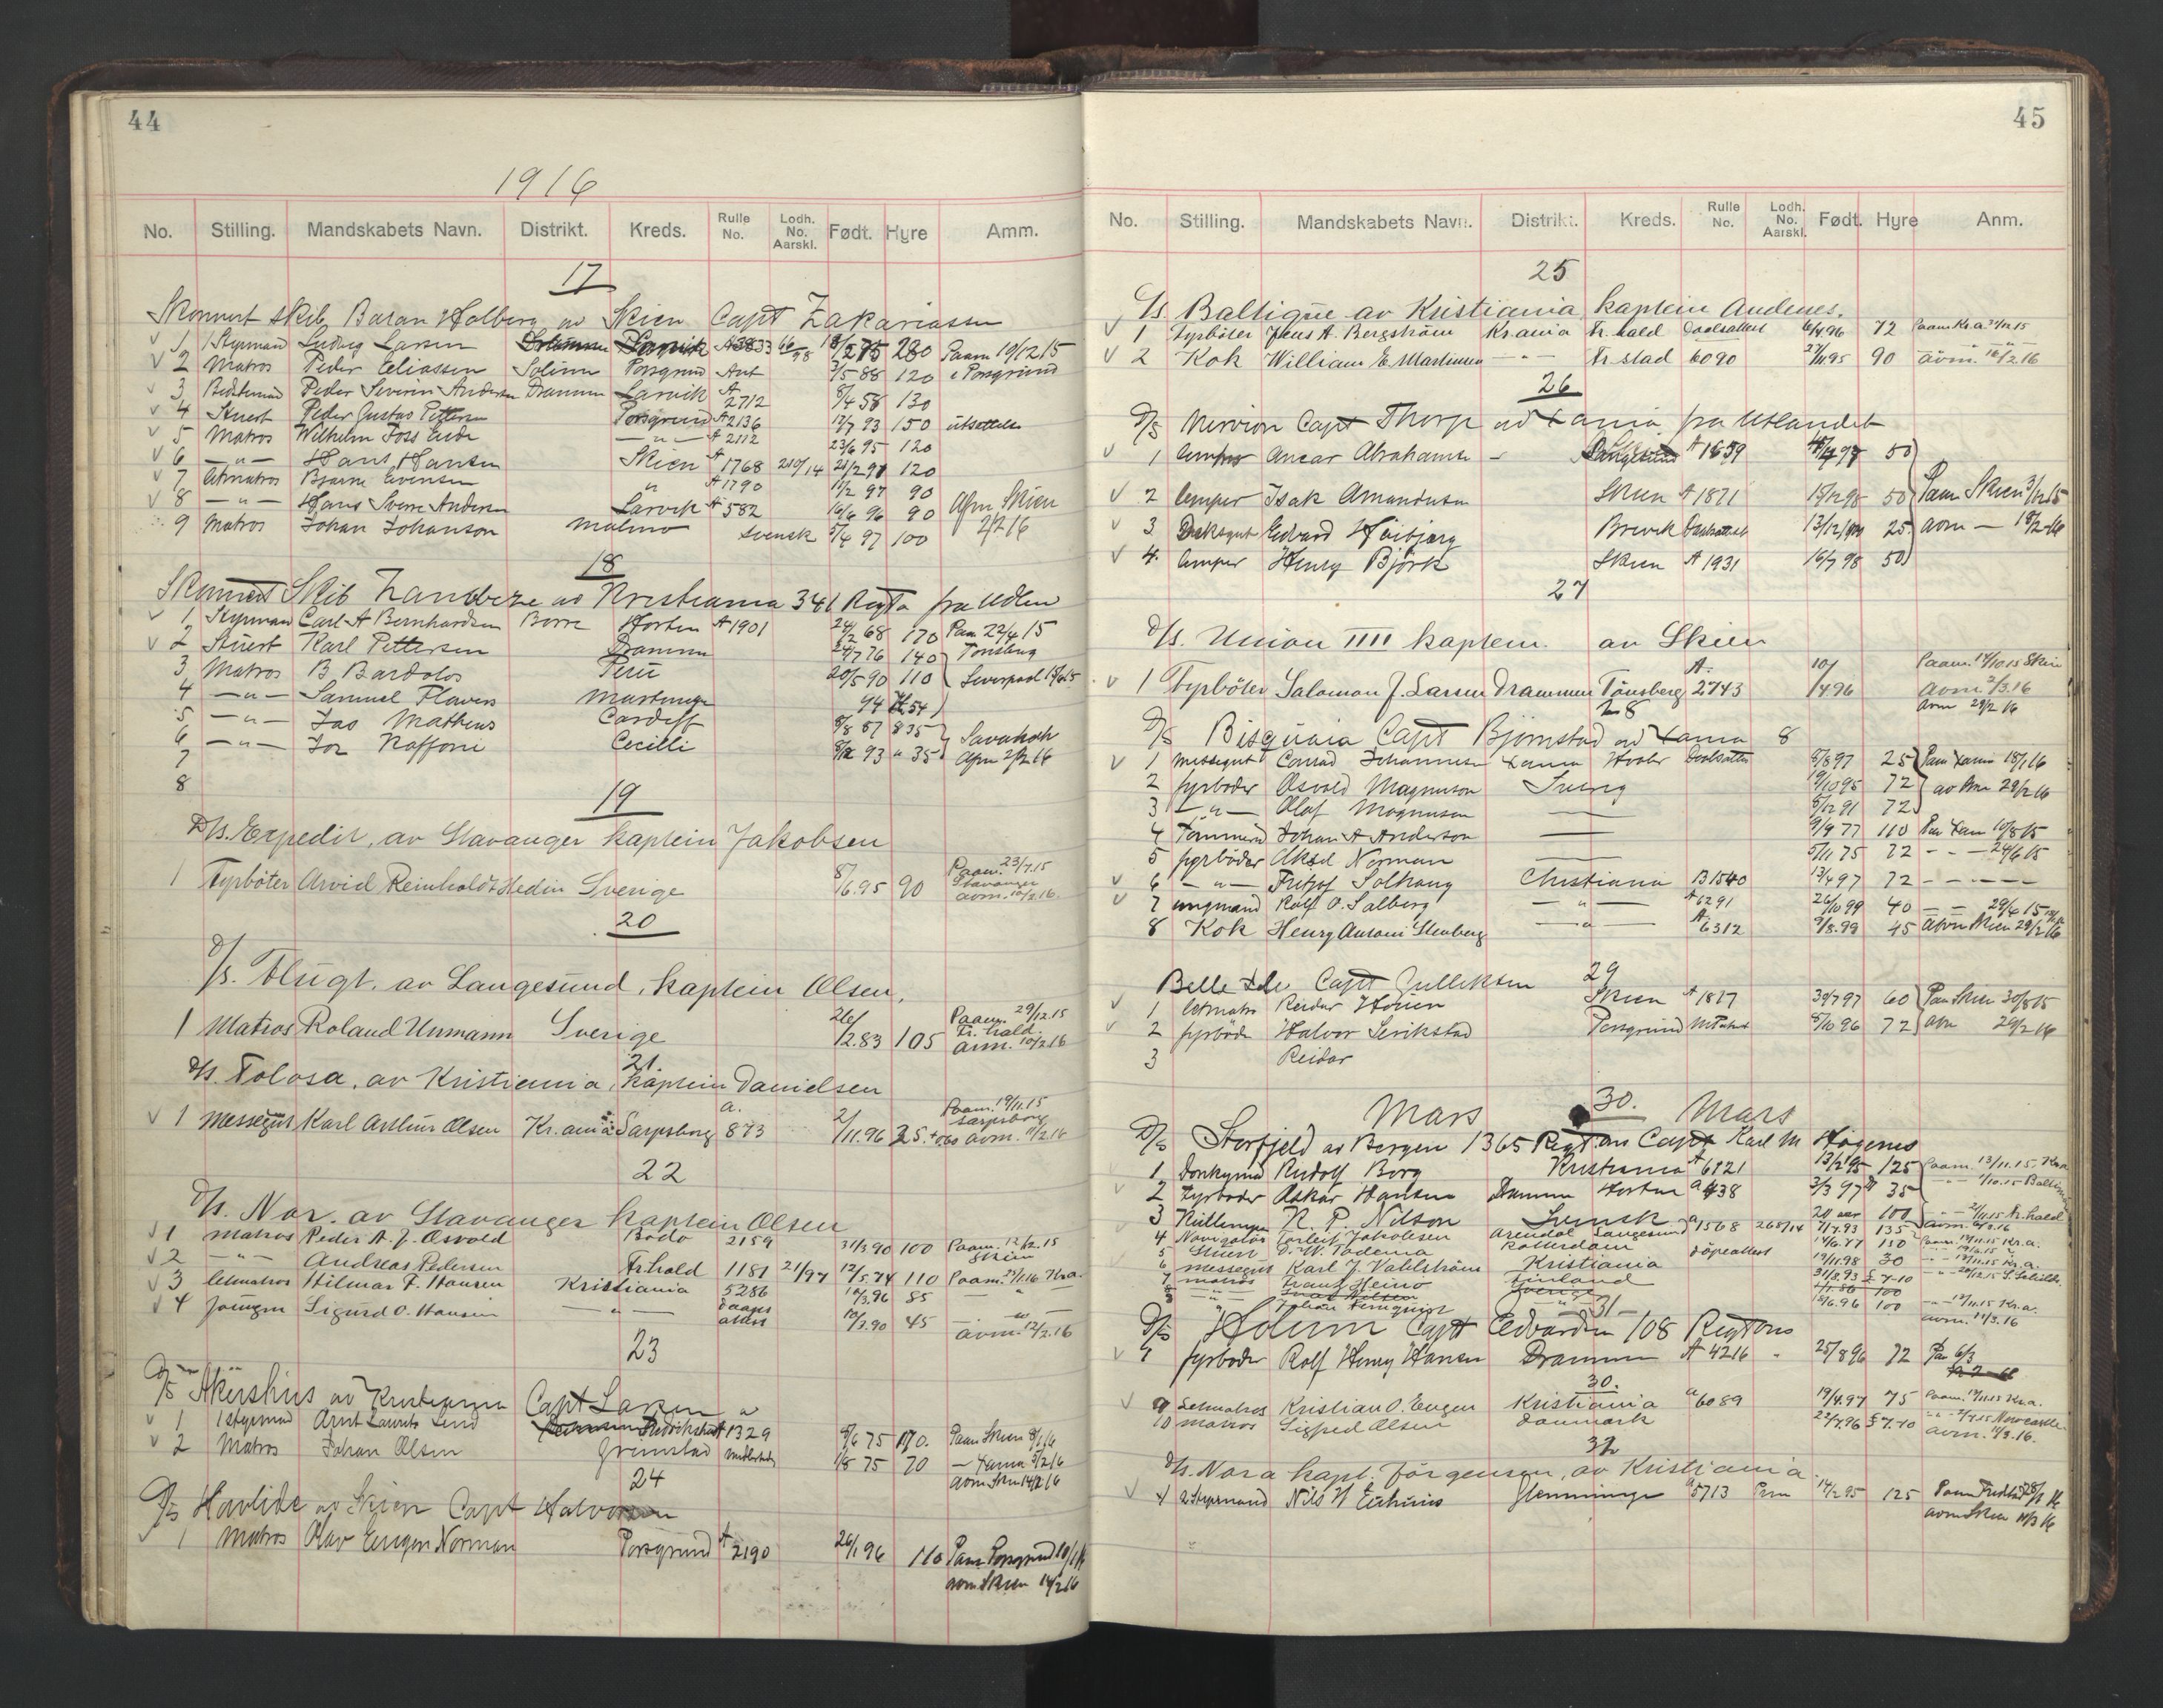 44
1916
No. Stilling. Mandskabets Navn. Distrikt. Kreds. Rulle No. Lodh. No. Aarskl. Født. Hyre Amm.
17
Skonnert skib Baran Holberg av Skien Capt Zakariassen
1 1 Styrmand Ludvig Larsen Larvik A3833 66/98 280 Paam 19/12 15
2 Matros Peder Eliassen Porsgrund Ant 3/5 88 120 i Porsgrund
3 Peder Severin Andersen Drammen Larvik A 2712 8/4 58 130
4 Stuert Peder Gustav Pettersen Porsgrund A 2136 13/7 93 150 utsettelse
5 Matros Wilhelm Foss Eide — " — A 2112 23/6 95 120
6 — " — Hans Hansen Skien A 1768 210/14 120
7 Letmatros Bjarne Evensen " A 1790 11/2 97 90
8 — " — Hans Sverre Andersen Larvik A 582 16/6 96 90 Afm Skien
9 Matros Johan Johanson Malmo svensk 5/4 97 100 2/2 16
18
Skonnert Skib av Kristiania 341 RegTo fra Udlen
1 Styrmand Carl A Bernhardsen Borre Horten A 1901 24/2 68 170 Paa 22/4 15
2 Stuert Karl Pettersen Drammen 24/7 76 140 Tønsberg
3 Matros B Bardolos Peru 20/5 90 110 Liverpool
4 — " — Samuel Flavers 94
5 — " — Jas Matthews Cardiff 8/8 87 835 Savanah
6 — " — Joz Raffone Cecilli 93 " 35 Afm 2/2 16
7
8
19
D/s. Expedit, av Stavanger kaptein Jakobsen
1 Fyrböter Arvid Reinholdt Hedin Sverige 8/6.95 90 Paam. 23/7.15 Stavanger avm. 10/2.16.
20
D/s. Flugt, av Langesund, kaptein Olsen,
1 Matros Roland Unmann Sverige 26/12.83 105 Paam. 29/12.15 Fr. hald. avm. 10/2 16
21.
D/s. Tolosa, av Kristiania, kaptein Danielsen
1 Messegut Karl Arthur Olsen Kr.ania Sarpsborg a. 873 2/11.96 25.+060 Paam. 19/11.15 Sarpsborg avm. 11/2.16
22
D/s. Nor. av Stavanger kaptein Olsen
1 Matros Peder A. J. Osvold Bodö 2159 31/3 90 100 Paam. 12/12.15 Skien
2 — " — Andreas Pedersen Fr.hald 1181 21/97 12/5.74 110 Paam. 25/1.16 Kr.a.
3 Letmatros Hilmar F. Hansen Kristiania 5286 14/3.96 85 — " —
4 Sigurd O. Hansen — " — daapsattest 12/3.90 45 — " — avm. 12/2.16
23
D/s Akershus av Kristiania Capt Larsen
1 1 styrmand Arnt Laurits Lund Fredrikstad A 1329 8/6 75 170. Paam Skien 8/1 16
2 Matros Johan Olsen Grimstad 1/8 75 70 — Xania 5/2 16
avm Skien 14/2 16
24
D/s Havlide av Skien Capt Halvorsen
1 Matros Olav Eugen Norman Porsgrund A 2190 26/1 96 110 Paam Porsgrund 10/1 16
avm Skien 14/2 16
45
No. Stilling. Mandskabets Navn. Distrikt. Kreds. Rulle No. Lodh. No. Aarskl. Født. Hyre Anm.
25
D/s. Baltique av Kristiania kaptein Andenes.
1 Fyrböter Jens A. Bergström Kr.ania Fr. hald Daabsattest 72
2 Kok William E. Martinsen — " — Fr. stad 6090 90 avm. 16/2.16
26
D/s Capt Thorp ad Xania fra Utlandet
1 Lemper Ancar Abrahamsen Langesund A 1659 50
2 Lemper Isak Amundsen Skien A 1871 50 Paam Skien 3/12 15
3 Dæksgut Edvard Høibjerg Brevik Daabsattest 25 avm — 18/2-16
4 Lemper Henry Björk Skien A 1931 16/7 98 50
27
D/s. Union IIII kaptein. av Skien
1 Fyrböter Salomon J. Larsen Drammen Tönsberg A. 2743 10/14 96 Paam. 14/10 15 Skien avm. 2/3.16
avm 29/2 16
28
D/s Bisquaia Capt Bjørnstad ad Xania 8
1 Messegut Conrad Johannesen Xania Daabsattest 8/8 97 25 Paam Xania 18/1 16
2 fyrbøder Osvald Magnuson Sverig 19/10 95 72 29/2 16
3 — " — Olof Magnuson — 8/12 91 72
4 Tømmermd Johan A Anderson — 9/9 77 110 Paa Xan 10/8 15
5 fyrbøder Aksel Norman — 5/11 75 72 - - - 24/6 15
6 — " — Fritjof Solhaug Christiania B 1540 13/4 97 72 - - - -
7 ungmand Rolf O. Salberg — " — A 6291 26/10 99 40 — — 29/6 15
8 Kok Henry Antoni Stenberg — " — A. 6312 9/8.99 45 Avm Skien 29/2 16
29
Belle Ile Capt Gulliksen
1 Letmatro Reidar Hoven Skien A 1877 30/7 97 60 Paa Skien 30/8 15
2 fyrbøde Halvor Serikstad Porsgrund 5/10 96 72 avm 29/2 16
3 Reidar
Mars 30. Mars
D/s Storfjeld av Bergen 1365 Regt.on Capt Karl M Høgenes
1 Donkymd Rudolf Borg Kristiania A 6121 13/2 95 125 Paam. 13/11.15, Kra
2 Fyrbøder Oskar Hansen Drammen Horten a 438 3/3 97 35
3 Kullemper N. P. Nilson Svensk 20 aar 100
4 Navigatör Torleif Jakobsen Arendal Langesund a 1568 268/14 7/4.93 135
5 Stuert D. W. Tadema Rotterdam 14/6.77 150 Paam. 19/11.15 Kr.a.
6 messegut Karl J. Vahlström Kristiania döpeattest 19/11.98 30
7 matros Frans Heino Finland 31/3.93 £ 7-10
8 — " — Sverige 1/1.86 100
9 " Johan Fernquist — " — 18/6.96 100 — 13/11.15 Kr.a. avm. 14/3.16
31
D/s Holum Capt Edvardsen 108 RegTons
1 fyrbøder Rolf Henry Hansen Drammen A 4216 25/8 96 72 Paa 6/3
30.
9 Letmatros Kristian O. Eugen Kristiania a 6089 19/4.97 75 Paam. 19/11.15 Kr.a.
10 matros Sigfred Olsen Danmark 22/7.96 £ 7.10 — 2/7.15 Newcastle avm. 14/3.16.
32
D/s. Nora kapt. Jörgensen, av Kristiania.
1 2 Styrmand Nils Glemminge a 5713 14/2 95 125 Paam Fredrikstad
avm Skien 14/3 16